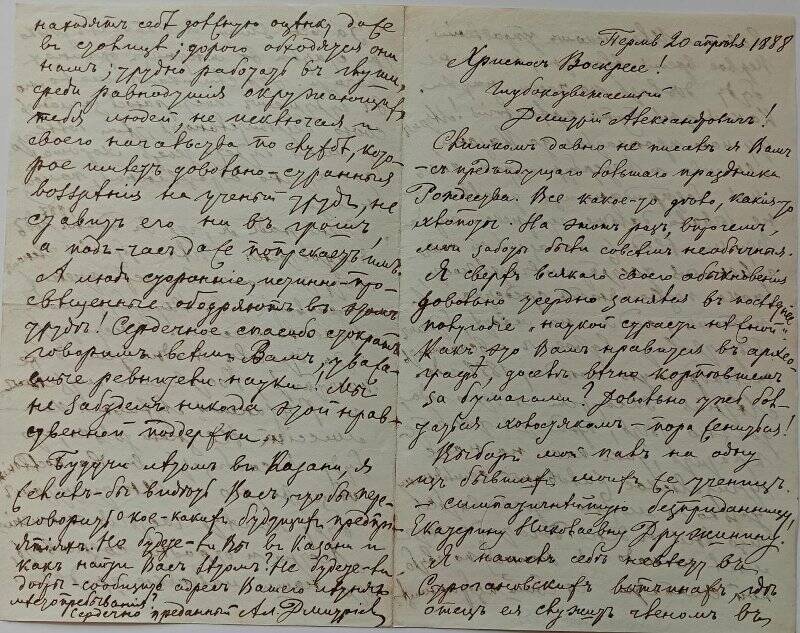 находятъ себѣ должную оцѣнку даже
въ столицѣ; дорого обходятся они
намъ; трудно работать въ глуши,
среди равнодушія окружающихъ
тебя людей, не исключая и
своего начальства по службѣ, кото-
рое имѣетъ довольно-странныя
воззрѣнія на ученый трудъ, не
ставитъ его ни въ грошъ,
а подъ-часъ даже попрекаетъ имъ.
А люди сторонніе, истинно-про-
свѣщенные ободряютъ въ этомъ
трудѣ! Сердечное спасибо стократъ
говоримъ всѣмъ Вамъ, уважа-
емые ревнители науки! Мы
не забудемъ никогда этой нрав-
ственной поддержки.
Будучи лѣтомъ въ Казани, я
желалъ-бы видѣть Васъ, чтобы пере-
говорить о кое-какихъ будущихъ предпрі-
ятіяхъ. Но будете-ли Вы въ Казани и
какъ найти Васъ лѣтомъ? Не будете-ли
добры сообщить адресъ Вашего лѣтняго
мѣстопребыванія?
Сердечно преданный Ал. Дмитріевъ
Пермь 20 апрѣля 1888
Христосъ Воскресе!
Глубокоуважаемый
Дмитрій Александровичъ!
Слишкомъ давно не писалъ я Вамъ
– съ предъидущаго большаго праздника
Рождества. Все какое-то дѣло, какія-то
хлопоты. На этотъ разъ, впрочемъ,
мои заботы были совсѣмъ необычныя.
Я сверхъ всякаго своего обыкновенія
довольно усердно занялся въ послѣднее
полугодіе „наукой страсти нѣжной".
Какъ это Вамъ нравится въ архео-
графѣ, доселѣ вѣчно корпѣвшемъ
за бумагами? Довольно ужъ бол-
таться холостякомъ – пора жениться!
Выборъ мой палъ на одну
изъ бывшихъ моихъ же ученицъ
– симпатичнѣйшую безприданницу
Екатерину Николаевну Дружинину!
Я нашелъ себѣ невѣсту въ
Строгановскихъ вотчинахъ, гдѣ
отецъ ея служитъ членомъ въ